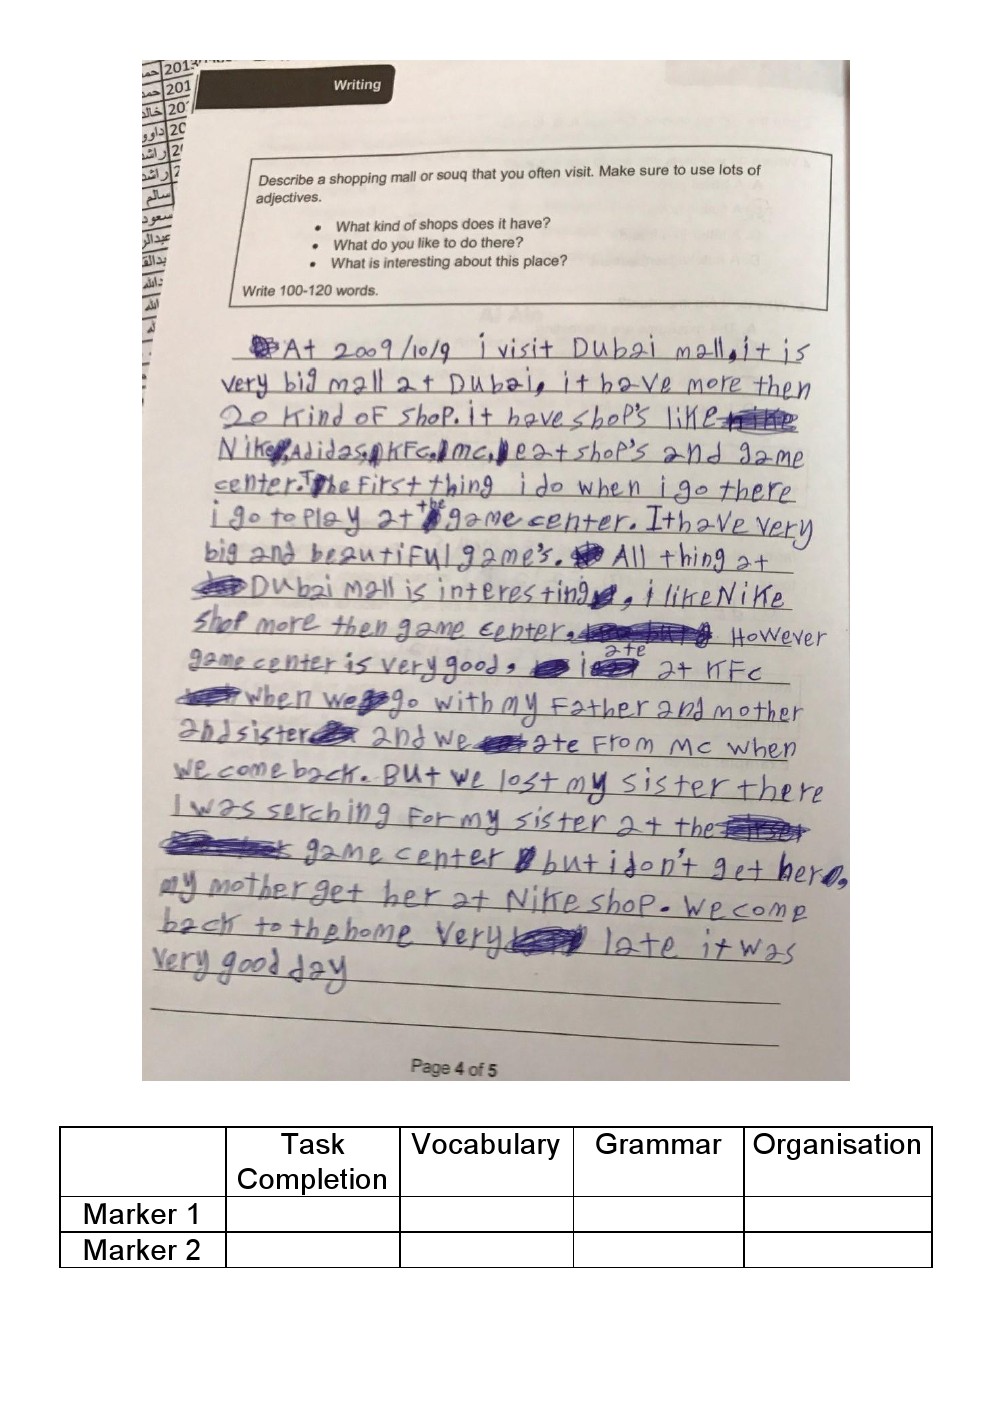 2013
201
201
20
20
2
Writing
Describe a shopping mall or souq that you often visit. Make sure to use lots of
adjectives.
• What kind of shops does it have?
• What do you like to do there?
• What is interesting about this place?
Write 100-120 words.
At 2009/10/9 i visit Dubai mall, it is
very big mall at Dubai, it have more then
20 kind of shop. it have shop's like
Nike, Adidas, KFc, mc, eat shop's and game
center. The First thing i do when i go there
i go to play at the game center. It have very
big and beautiful game's. All thing at
Dubai mall is interesting, i like Nike
shop more then game center. However
game center is very good, i ate at KFc
when we go with my Father and mother
and sister and we ate From Mc when
we come back. But we lost my sister there
I was serching For my sister at the
game center but i don't get her,
my mother get her at Nike shop. We come
back to the home very late it was
very good day
Page 4 of 5
Task Completion Vocabulary Grammar Organisation
Marker 1
Marker 2